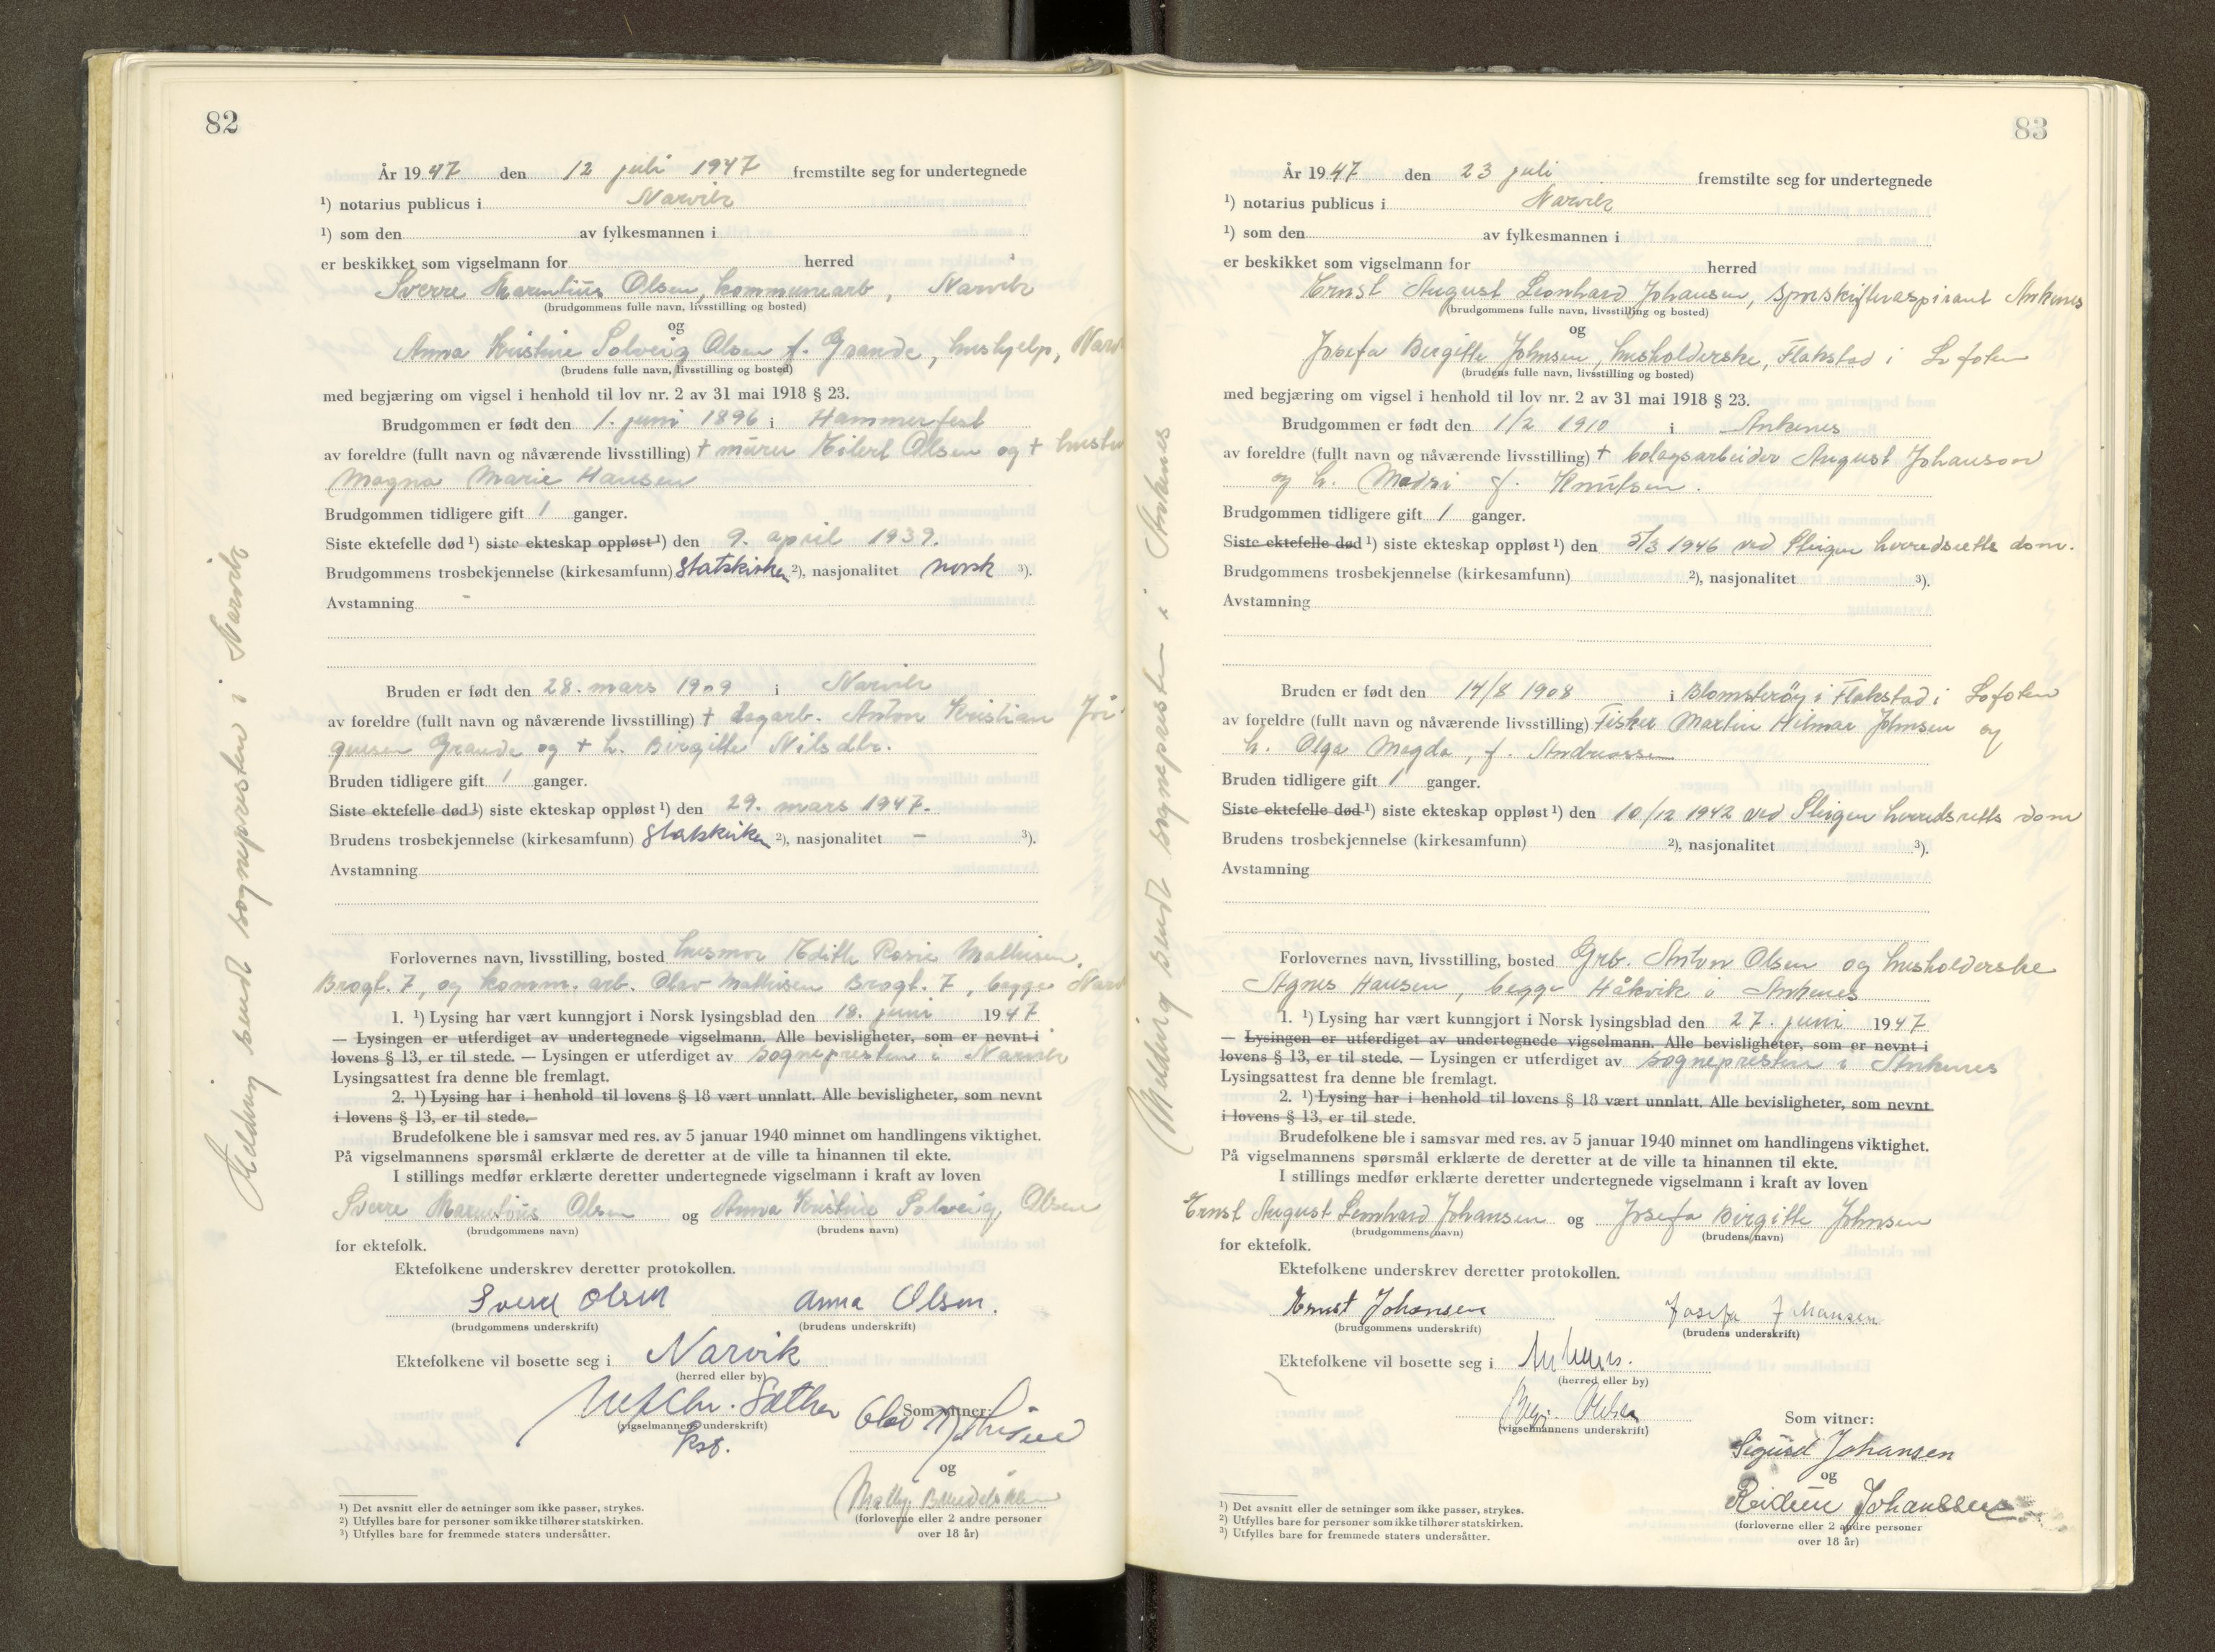 82
År 1947 den 12 juli 1947 fremstilte seg for undertegnede
¹) notarius publicus i Narvik
¹) som den av fylkesmannen i
er beskikket som vigselmann for herred
Sverre Marentius Olsen, kommunearb, Narvik
(brudgommens fulle navn, livsstilling og bosted)
og
Anna Kristine Solveig Olsen f. Grande, hushjelp, Narv
(brudens fulle navn, livsstilling og bosted)
med begjæring om vigsel i henhold til lov nr. 2 av 31 mai 1918 § 23.
Brudgommen er født den 1. juni 1896 i Hammerfest
av foreldre (fullt navn og nåværende livsstilling) + murer Eilert Olsen og + hustru
Magna Marie Hansen
Brudgommen tidligere gift 1 ganger.
Siste ektefelle død ¹) siste ekteskap oppløst ¹) den 9. april 1939.
Brudgommens trosbekjennelse (kirkesamfunn) Statskirken ²), nasjonalitet norsk ³).
Avstamning -
Bruden er født den 28. mars 1909 i Narvik
av foreldre (fullt navn og nåværende livsstilling) + dagarb. Anton Kristian Jør-
gensen Grande og + h. Birgitte Nilsdtr.
Bruden tidligere gift 1 ganger.
Siste ektefelle død ¹) siste ekteskap oppløst ¹) den 29. mars 1947.
Brudens trosbekjennelse (kirkesamfunn) Statskirken ²), nasjonalitet - ³).
Avstamning
Forlovernes navn, livsstilling, bosted husmor Edith Rosie Mathisen,
Brogt. 7, og komm. arb. Olav Mathisen Brogt. 7, begge Narv
1. ¹) Lysing har vært kunngjort i Norsk lysingsblad den 18. juni 1947
— Lysingen er utferdiget av undertegnede vigselmann. Alle bevisligheter, som er nevnt i
lovens § 13, er til stede. — Lysingen er utferdiget av sognepresten i Narvik
Lysingsattest fra denne ble fremlagt.
2. ¹) Lysing har i henhold til lovens § 18 vært unnlatt. Alle bevisligheter, som nevnt
i lovens § 13, er til stede.
Brudefolkene ble i samsvar med res. av 5 januar 1940 minnet om handlingens viktighet.
På vigselmannens spørsmål erklærte de deretter at de ville ta hinannen til ekte.
I stillings medfør erklærte deretter undertegnede vigselmann i kraft av loven
Sverre Marentius Olsen og Anna Kristine Solveig Olsen
(brudgommens navn) (brudens navn)
for ektefolk.
Ektefolkene underskrev deretter protokollen.
Sverre Olsen Anna Olsen.
(brudgommens underskrift) (brudens underskrift)
Ektefolkene vil bosette seg i Narvik
(herred eller by)
Sæther Som vitner:
Olav Mathisen
(vigselmannens underskrift)
og
Melding sendt sognepresten i Narvik
¹) Det avsnitt eller de setninger som ikke passer, strykes.
²) Utfylles bare for personer som ikke tilhører statskirken. (forloverne eller 2 andre personer
³) Utfylles bare for fremmede staters undersåtter. over 18 år)
83
År 1947 den 23 juli fremstilte seg for undertegnede
¹) notarius publicus i Narvik
¹) som den av fylkesmannen i
er beskikket som vigselmann for herred
Ernst August Leonhard Johansen, sporskifteraspirant Ankenes
(brudgommens fulle navn, livsstilling og bosted)
og
Josefa Birgitte Johnsen, husholderske, Flakstad i Lofoten
(brudens fulle navn, livsstilling og bosted)
med begjæring om vigsel i henhold til lov nr. 2 av 31 mai 1918 § 23.
Brudgommen er født den 1/2 1910 i Ankenes
av foreldre (fullt navn og nåværende livsstilling) + bolagsarbeider August Johanson
og h. Madsi f. Knutsen.
Brudgommen tidligere gift 1 ganger.
Siste ektefelle død ¹) siste ekteskap oppløst ¹) den 5/3 1946 ved Steigen herredsretts dom.
Brudgommens trosbekjennelse (kirkesamfunn) ²), nasjonalitet ³).
Avstamning
Bruden er født den 14/8 1908 i Blomsterøy i Flakstad i Lofoten
av foreldre (fullt navn og nåværende livsstilling) Fisker Martin Hilmar Johnsen og
h. Olga Magda, f. Andreassen
Bruden tidligere gift 1 ganger.
Siste ektefelle død ¹) siste ekteskap oppløst ¹) den 10/12 1942 ved Steigen herredsretts dom
Brudens trosbekjennelse (kirkesamfunn) ²), nasjonalitet ³).
Avstamning
Forlovernes navn, livsstilling, bosted Grb. Anton Olsen og husholderske
Agnes Hansen, begge Håkvik i Ankenes
1. ¹) Lysing har vært kunngjort i Norsk lysingsblad den 27. juni 1947
— Lysingen er utferdiget av undertegnede vigselmann. Alle bevisligheter, som er nevnt i
lovens § 13, er til stede. — Lysingen er utferdiget av sognepresten i Ankenes
Lysingsattest fra denne ble fremlagt.
2. ¹) Lysing har i henhold til lovens § 18 vært unnlatt. Alle bevisligheter, som nevnt
i lovens § 13, er til stede.
Brudefolkene ble i samsvar med res. av 5 januar 1940 minnet om handlingens viktighet.
På vigselmannens spørsmål erklærte de deretter at de ville ta hinannen til ekte.
I stillings medfør erklærte deretter undertegnede vigselmann i kraft av loven
Ernst August Leonhard Johansen og Josefa Birgitte Johnsen
(brudgommens navn) (brudens navn)
for ektefolk.
Ektefolkene underskrev deretter protokollen.
Ernst Johansen Josefa Johansen
(brudgommens underskrift) (brudens underskrift)
Ektefolkene vil bosette seg i Ankenes.
(herred eller by)
(vigselmannens underskrift)
Som vitner:
Sigurd Johansen
og
Reidun Johanssen
(forloverne eller 2 andre personer
over 18 år)
¹) Det avsnitt eller de setninger som ikke passer, strykes.
²) Utfylles bare for personer som ikke tilhører statskirken.
³) Utfylles bare for fremmede staters undersåtter.
Melding sendt sognepresten i Ankenes